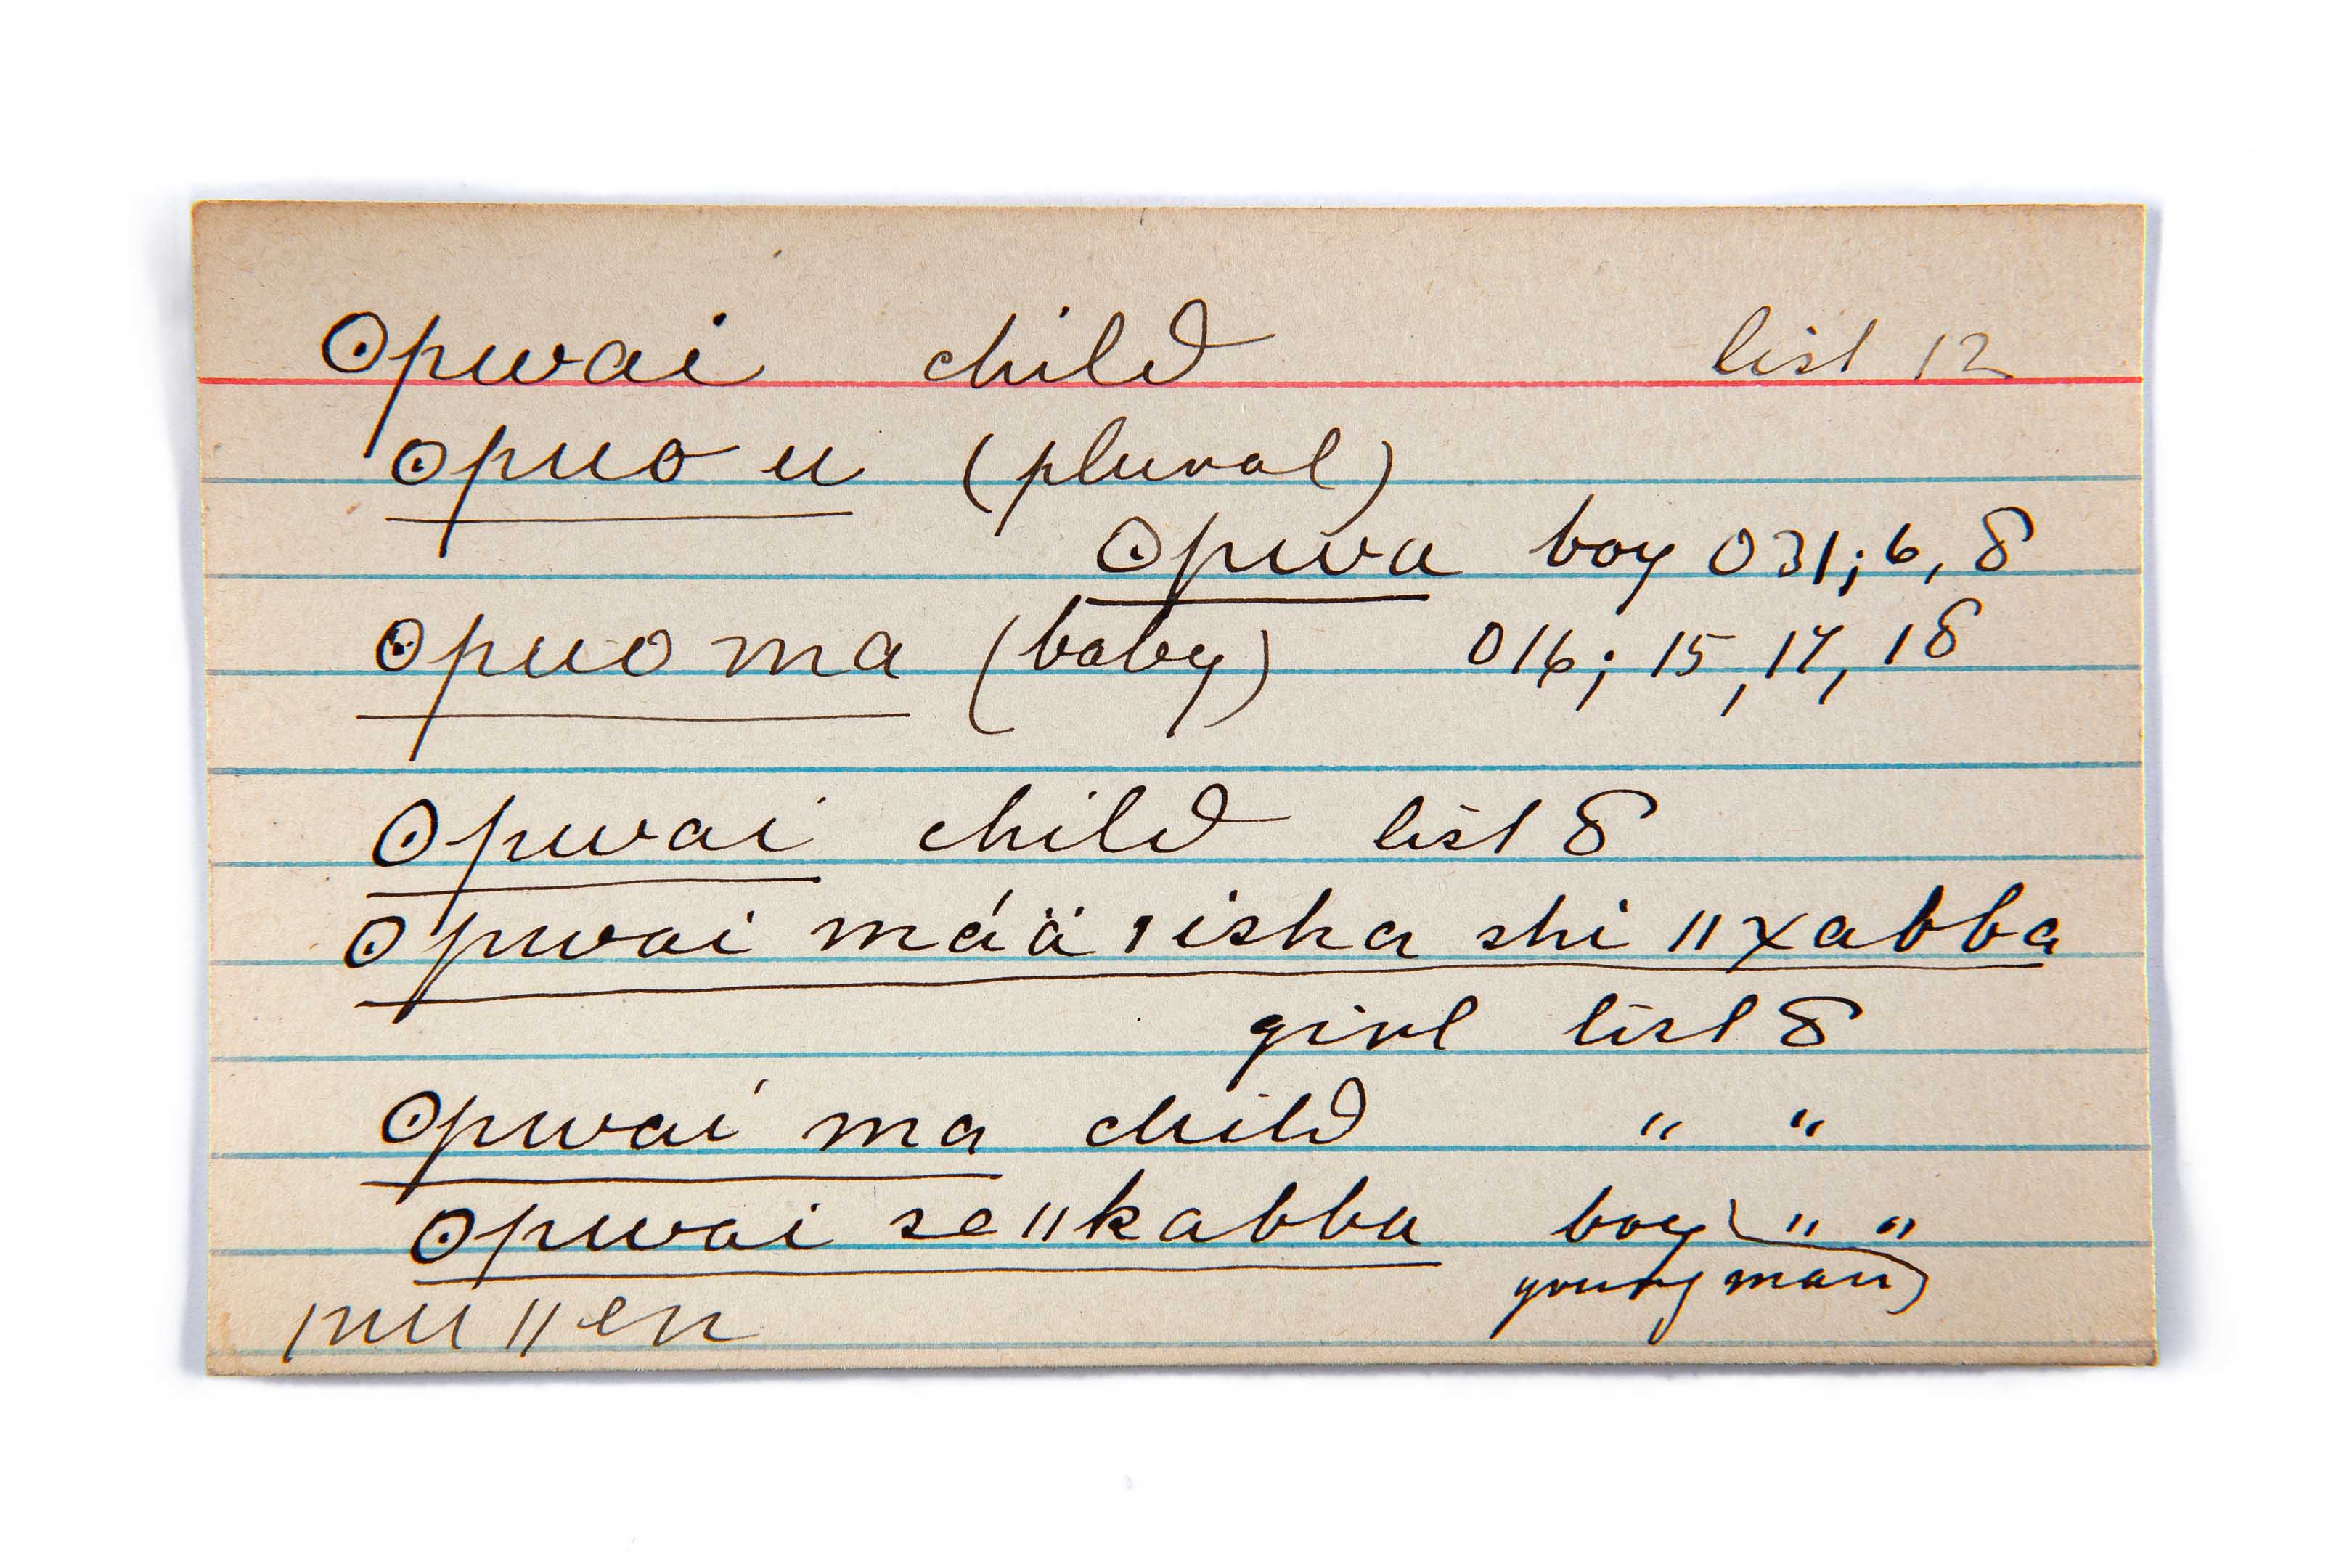 ʘpwai child list 12
ʘpuo u (plural)
ʘpwa boy 031; 6, 8
ʘpuo ma (baby) 016; 15, 17, 18
ʘpwai child list 8
ʘpwai máä ǀisha shi ǁxabba
girl list 8
ʘpwai ma child " "
ʘpwai se ǁkabba boy " "
young man)
ǀnu ǁen